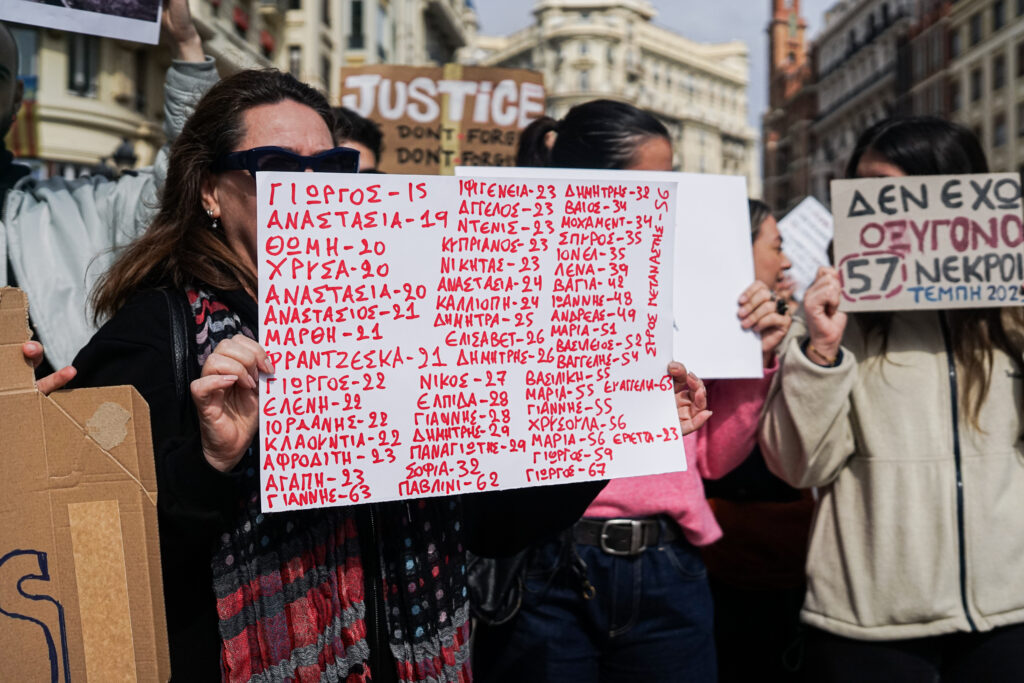 JUSTICE
DON'T FORGET
DON'T FORGI
ΓΙΩΡΓΟΣ-15
ΑΝΑΣΤΑΣΙΑ-19
ΘΩΜΗ-20
ΧΡΥΣΑ-20
ΑΝΑΣΤΑΣΙΑ-20
ΑΝΑΣΤΑΣΙΟΣ-21
ΜΑΡΘΗ-21
ΦΡΑΝΤΖΕΣΚΑ-21
ΓΙΩΡΓΟΣ-22
ΕΛΕΝΗ-22
ΙΟΡΔΑΝΗΣ-22
ΚΛΑΟΥΝΤΙΑ-22
ΑΦΡΟΔΙΤΗ-23
ΑΓΑΠΗ-23
ΓΙΑΝΝΗΣ-63
ΙΦΙΓΕΝΕΙΑ-23
ΑΓΓΕΛΟΣ-23
ΝΤΕΝΙΣ-23
ΚΥΠΡΙΑΝΟΣ-23
ΝΙΚΗΤΑΣ-23
ΑΝΑΣΤΑΣΙΑ-24
ΚΑΛΛΙΟΠΗ-24
ΔΗΜΗΤΡΑ-25
ΕΛΙΣΑΒΕΤ-26
ΔΗΜΗΤΡΗΣ-26
ΝΙΚΟΣ-27
ΕΛΠΙΔΑ-28
ΓΙΑΝΝΗΣ-28
ΔΗΜΗΤΡΗΣ-29
ΠΑΝΑΓΙΩΤΗΣ-29
ΣΟΦΙΑ-32
ΠΑΒΛΙΝΙ-62
ΔΗΜΗΤΡΗΣ-32
ΒΑΙΟΣ-34
ΜΟΧΑΜΕΝΤ-34
ΣΠΥΡΟΣ-35
ΙΟΝΕΛ-35
ΛΕΝΑ-39
ΒΑΓΙΑ-42
ΙΩΑΝΝΗΣ-48
ΑΝΔΡΕΑΣ-49
ΜΑΡΙΑ-51
ΒΑΣΙΛΕΙΟΣ-52
ΒΑΓΓΕΛΗΣ-54
ΒΑΣΙΛΙΚΗ-55
ΜΑΡΙΑ-55 ΕΥΑΓΓΕΛΗ-65
ΓΙΑΝΝΗΣ-55
ΧΡΥΣΟΥΛΑ-56
ΜΑΡΙΑ-56 ΕΡΙΕΤΤΑ-23
ΓΙΩΡΓΟΣ-59
ΓΙΩΡΓΟΣ-67
ΣΥΡΟΣ ΜΕΤΑΝΑΣΤΗΣ-
ΔΕΝ ΕΧΩ
ΟΞΥΓΟΝΟ
57 ΝΕΚΡΟΙ
ΤΕΜΠΗ 202